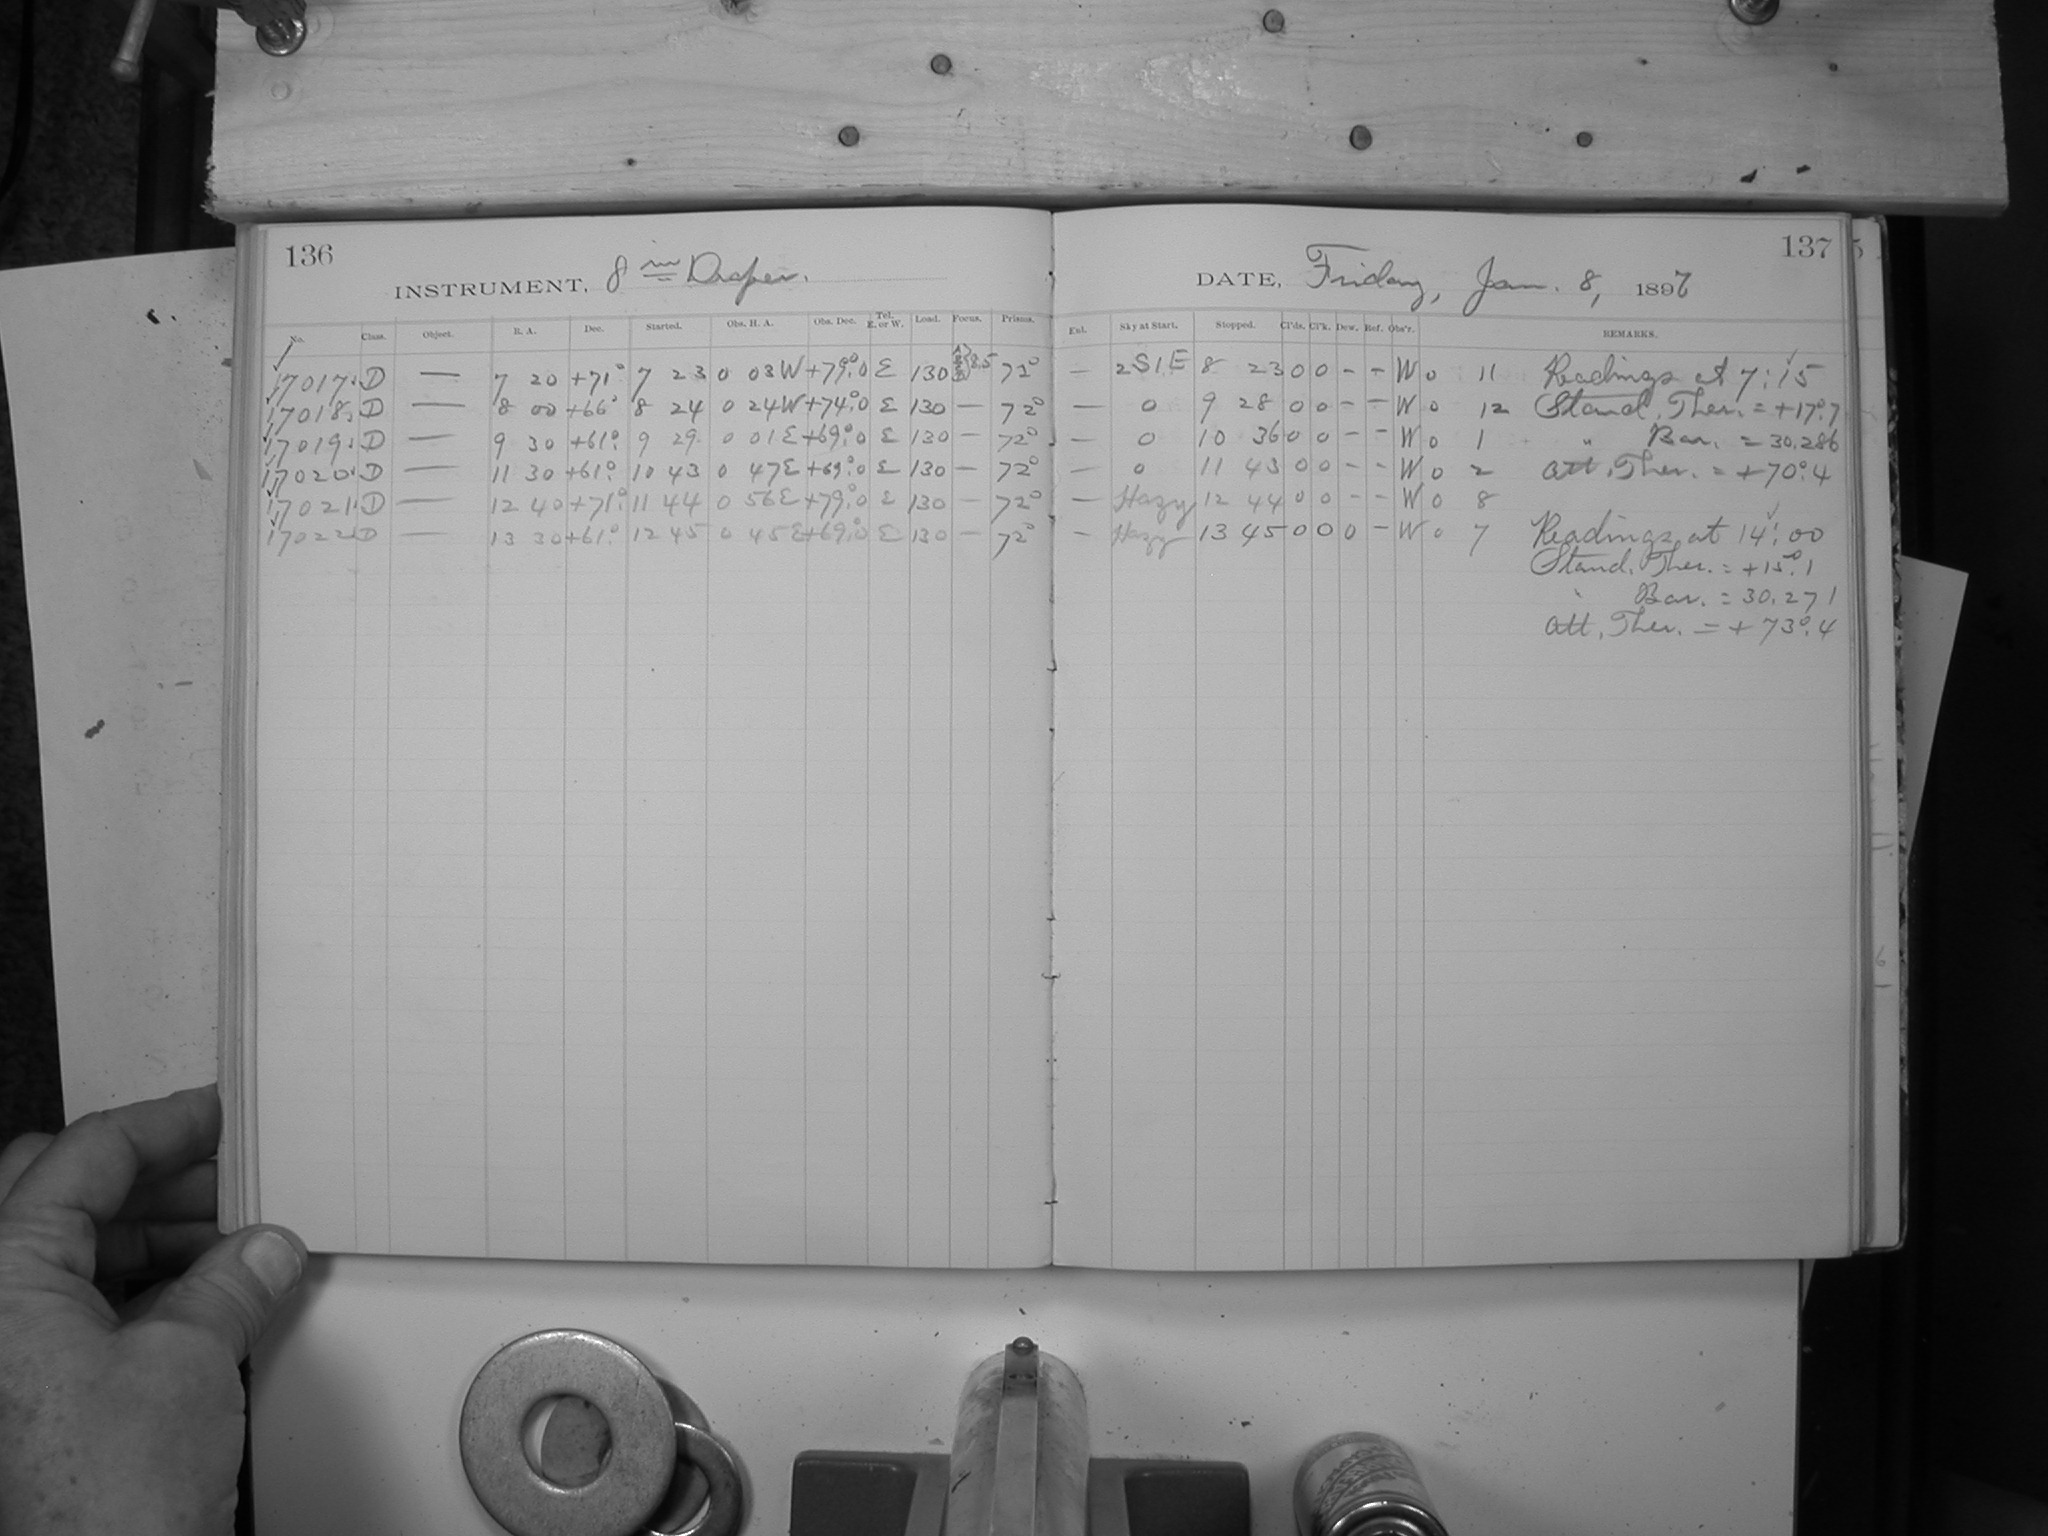 136
INSTRUMENT, 8 in Draper.
No. Class. Object. R. A. Dec. Started. Obs. H. A. Obs. Dec. Tel. E. or W. Load. Focus. Prisms.
17017 D — 7 20 +71° 7 23 0 03W +79°.0 E 130 8.5 72°
17018 D — 8 00 +66° 8 24 0 24W +74°.0 E 130 — 72°
17019 D — 9 30 +61° 9 29 0 01E +69°.0 E 130 — 72°
17020 D — 11 30 +61° 10 43 0 47E +69°.0 E 130 — 72°
17021 D — 12 40 +71° 11 44 0 56E +79°.0 E 130 — 72°
17022 D — 13 30 +61° 12 45 0 45E +69°.0 E 130 — 72°
137
DATE, Friday, Jan. 8, 1897
Ext. Sky at Start. Stopped. Cl'ds. Cl'k. Dew. Ref. Obs'r. REMARKS.
— 2S1E 8 23 0 0 – – W 0 11 Readings at 7:15
— 0 9 28 0 0 – – W 0 12 Stand. Ther. = +17°.7
— 0 10 36 0 0 – – W 0 1 " Bar. = 30.286
— 0 11 43 0 0 – – W 0 2 Att. Ther. = +70°.4
— Hazy 12 44 0 0 – – W 0 8
— Hazy 13 45 0 0 0 – W 0 7 Readings at 14:00
Stand. Ther. = +15°.1
Bar. = 30.271
Att. Ther. = +73°.4